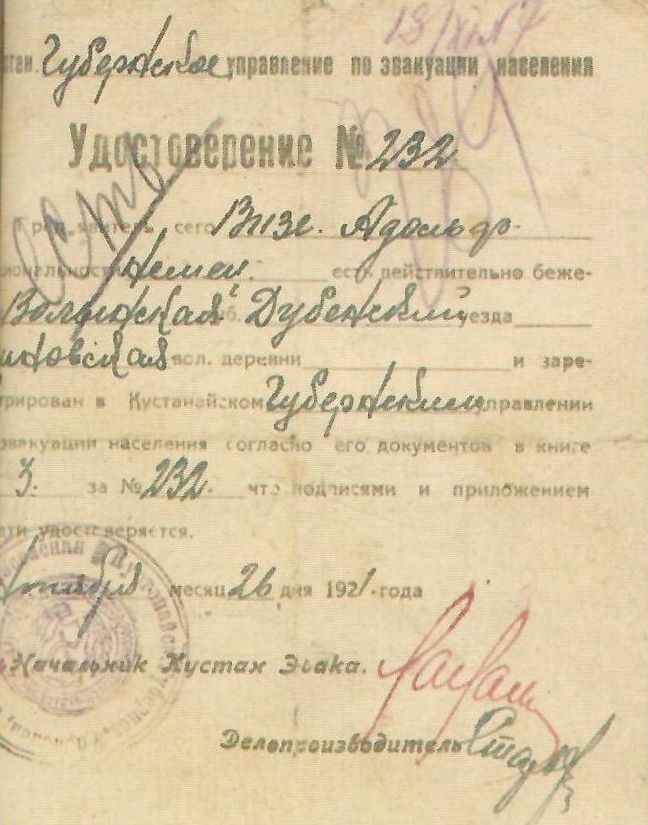 13/XI
стан. Губернское управление по эвакуации населения
Удостоверение № 232
пред'явитель сего Визе. Адольф
циональность Немец. есть действительно беже-
Волынская губ. Дубенский уезда
вол. деревни и заре-
трирован в Кустанайском Губернским управлении
эвакуации населения согласно его документов в книге
3. за № 232. что подписями и приложением
чати удостоверяется.
месяц 26 дня 1921 года
Начальник Кустан Эвака.
Делопроизводитель